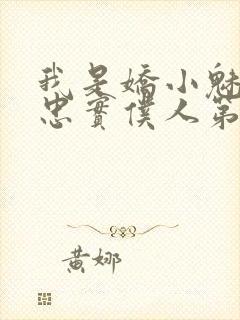 我是嬌小魅
忠實僕人第
黃娜